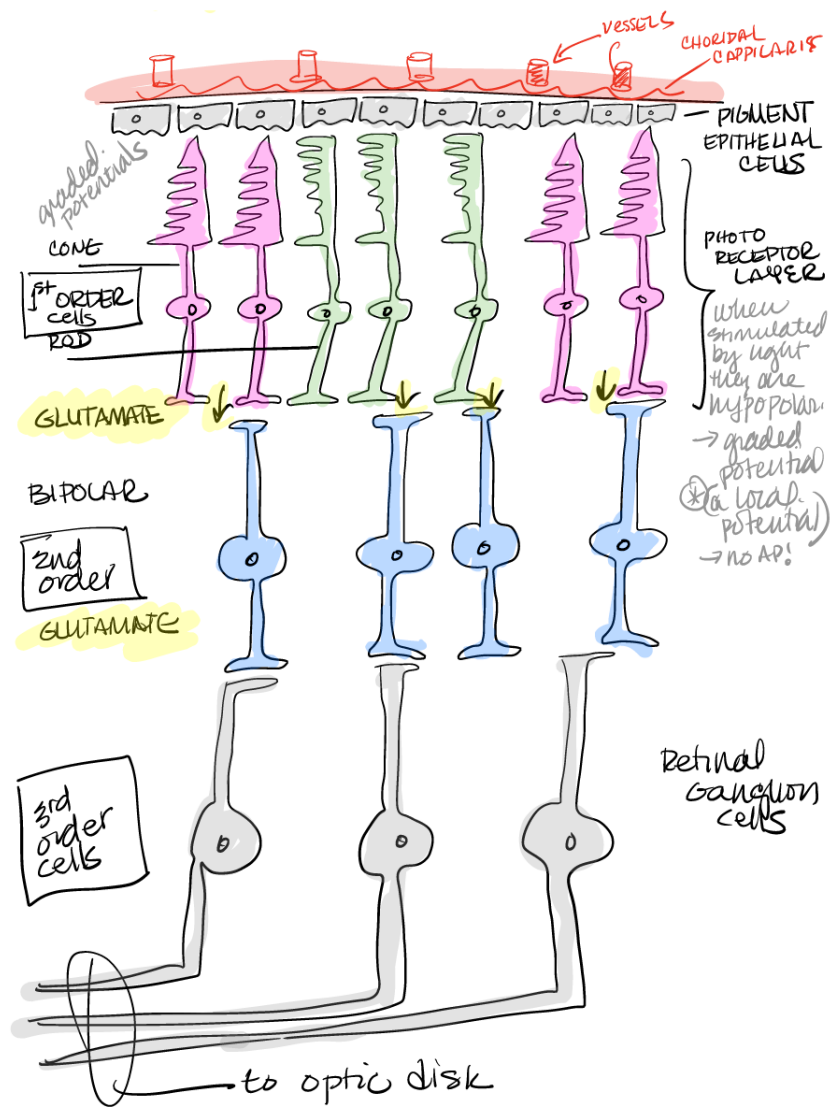 VESSELS
CHORIDAL
CAPPILARIS
PIGMENT
EPITHELIAL
CELLS
graded
potentials
CONE
1st ORDER
cells
ROD
PHOTO
RECEPTOR
LAYER
when
stimulated
by light
they are
hypopolar.
→ graded
potential
* (a local
potential)
→ no AP!
GLUTAMATE
BIPOLAR
2nd
order
GLUTAMATE
3rd
order
cells
Retinal
Ganglion
cells
to optic disk